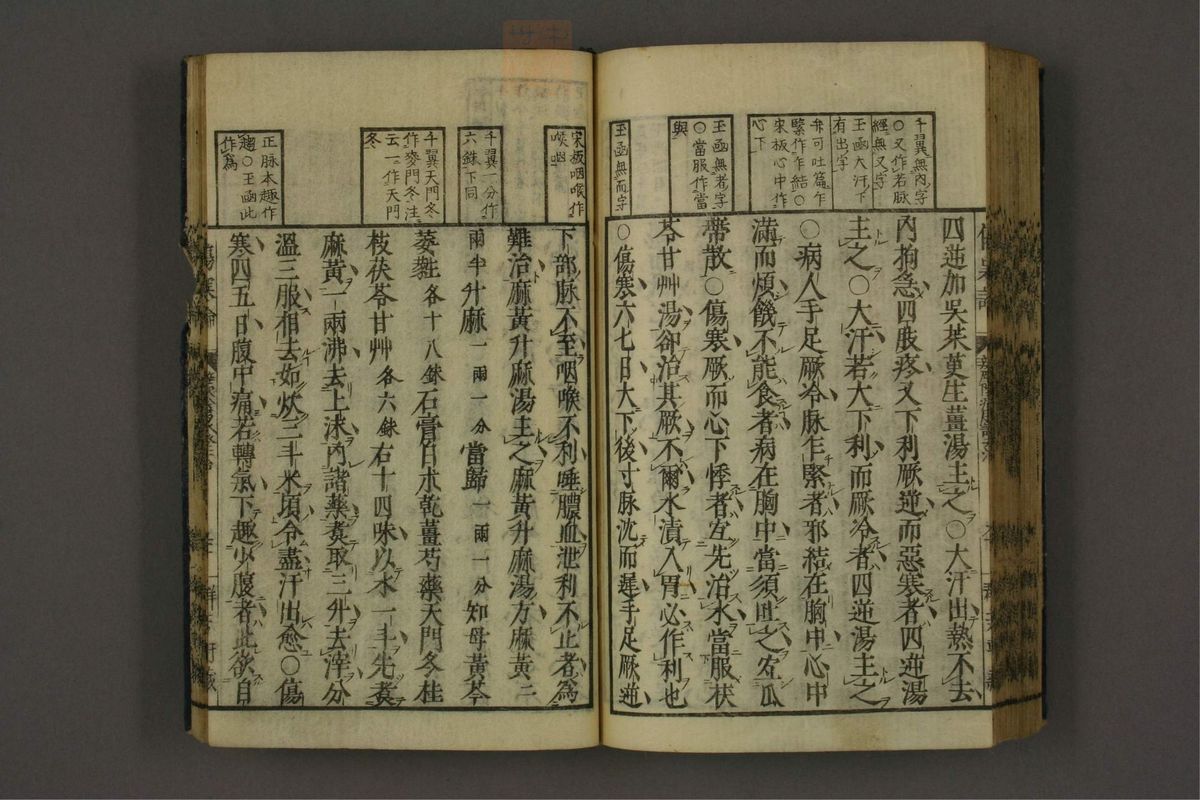 千翼無內字
○又作若脉
經無又字
玉函大汗下
有出字
弁可吐篇乍
緊作作結○
宋板心中作
心下
玉函無者字
○當服作當
與
玉函無而字
四逆加吳茱萸生薑湯主之○大汗出熱不去
內拘急四肢疼又下利厥逆而惡寒者四逆湯
主之○大汗若大下利而厥冷者四逆湯主之
○病人手足厥冷脉乍緊者邪結在胸中心中
滿而煩饑不能食者病在胸中當須吐之宜瓜
蒂散○傷寒厥而心下悸者宜先治水當服茯
苓甘艸湯卻治其厥不爾水漬入胃必作利也
○傷寒六七日大下後寸脉沈而遲手足厥逆
宋板咽喉作
喉咽
千翼一分作
六銖下同
千翼天門冬
作麥門冬注
云一作天門
冬
正脉本趣作
趨○玉函此
作爲
下部脉不至咽喉不利唾膿血泄利不止者爲
難治麻黃升麻湯主之麻黃升麻湯方麻黃二
兩半升麻一兩一分當歸一兩一分知母黃芩
萎蕤各十八銖石膏白朮乾薑芍藥天門冬桂
枝茯苓甘艸各六銖右十四味以水一斗先煑
麻黃一兩沸去上沫內諸藥煑取三升去滓分
溫三服相去如炊三斗米頃令盡汗出愈○傷
寒四五日腹中痛若轉氣下趣少腹者此欲自
傷寒論